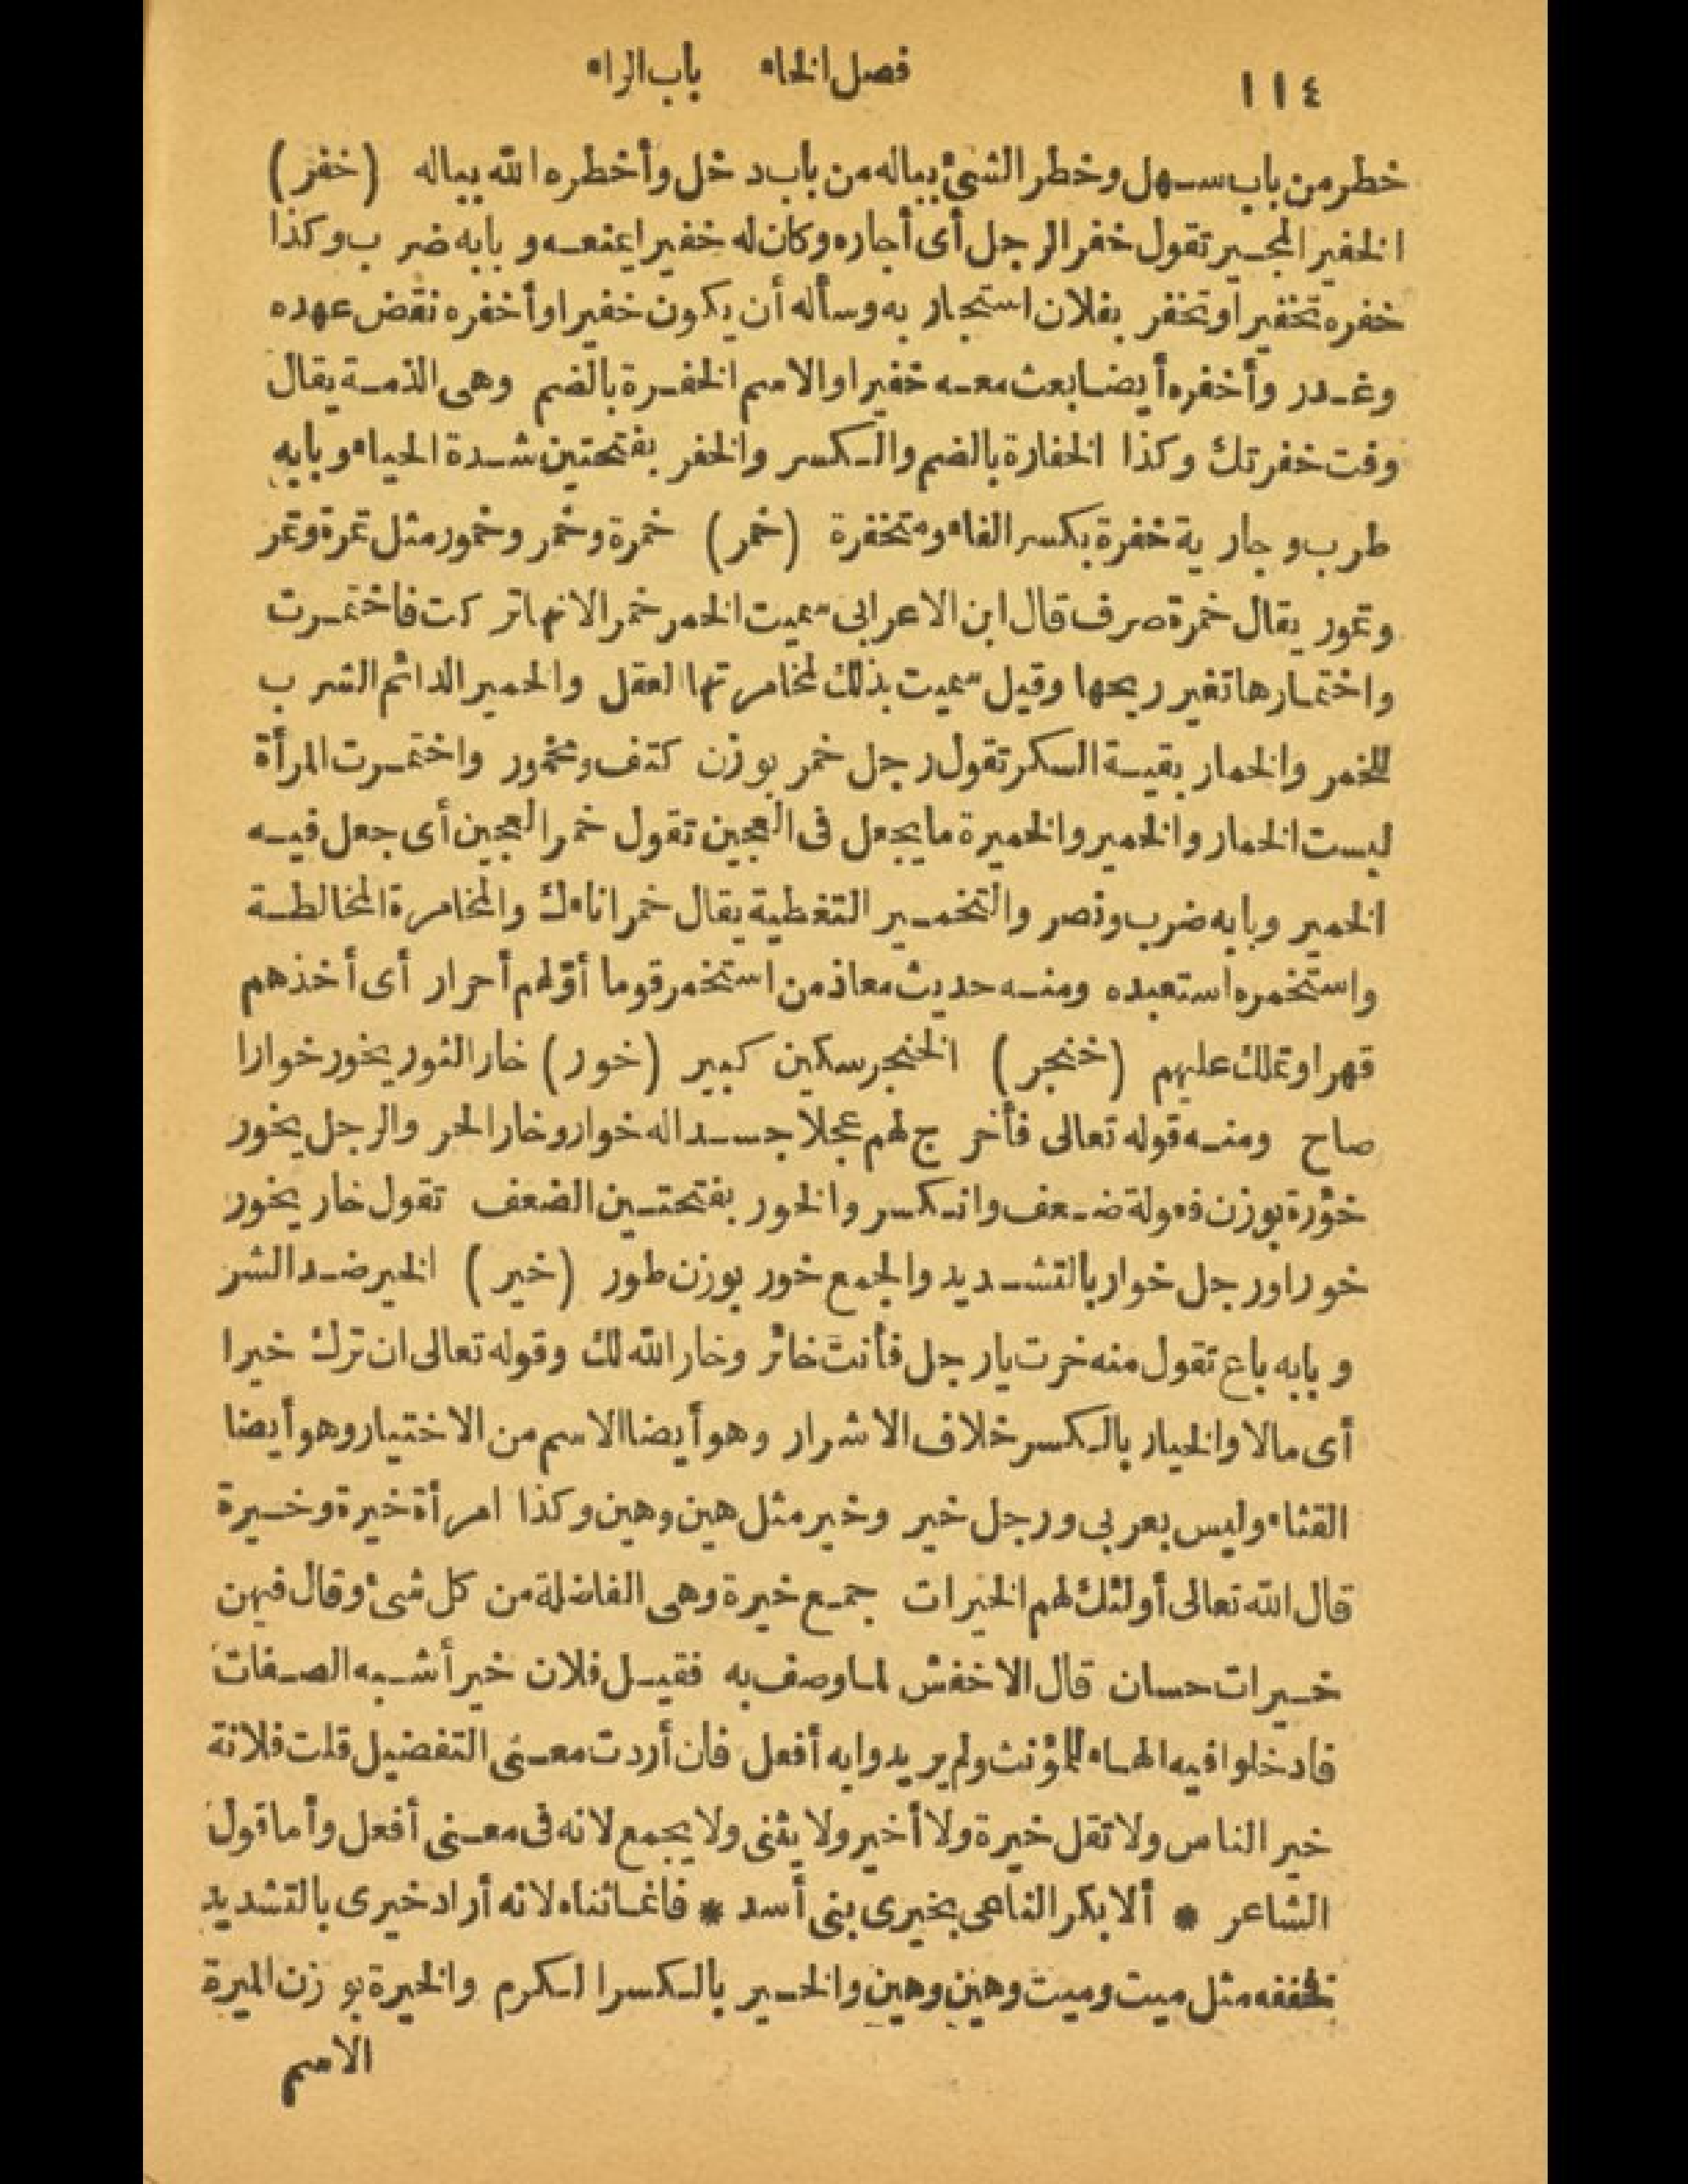 ١١٤ فصل الخاء باب الراء
خطر من باب سهل وخطر الشئ بباله من باب دخل وأخطره الله بباله (خفر)
الخفير المجير تقول خفر الرجل أى أجاره وكان له خفيرا يمنعه و بابه ضرب وكذا
خفره تخفيرا وتخفر بفلان استجار به وسأله أن يكون خفيرا وأخفره نقض عهده
وغدر وأخفره أيضا بعث معه خفيرا والاسم الخفرة بالضم وهى الذمة يقال
وفت خفرتك وكذا الخفارة بالضم والكسر والخفر بفتحتين شدة الحياء وبابه
طرب وجارية خفرة بكسر الفاء ومتخفرة (خمر) خمرة وخمر وخمور مثل تمرة وتمر
وتمور يقال خمرة صرف قال ابن الاعرابى سميت الخمر خمرا لانها تركت فاختمرت
واختمارها تغير ريحها وقيل سميت بذلك لمخامرتها العقل والخمير الدائم الشرب
للخمر والخمار بقية السكر تقول رجل خمر بوزن كتف ومخمور واختمرت المرأة
لبست الخمار والخمير والخميرة ما يجعل فى العجين تقول خمر العجين أى جعل فيه
الخمير وبابه ضرب ونصر والتخمير التغطية يقال خمر اناءك والمخامرة المخالطة
واستخمره استعبده ومنه حديث معاذ من استخمر قوما أوّلهم أحرار أى أخذهم
قهرا وتملك عليهم (خنجر) الخنجر سكين كبير (خور) خار الثور يخور خوارا
صاح ومنه قوله تعالى فأخرج لهم عجلا جسدا له خوار وخار الحر والرجل يخور
خؤرة بوزن فعولة ضعف وانكسر والخور بفتحتين الضعف تقول خار يخور
خورا ورجل خوار بالتشديد والجمع خور بوزن طور (خير) الخير ضد الشر
و بابه باع تقول منه خرت يارجل فأنت خائر وخار الله لك وقوله تعالى ان ترك خيرا
أى مالا والخيار بالكسر خلاف الاشرار وهو أيضا الاسم من الاختيار وهو أيضا
القثاء وليس بعربى ورجل خير وخير مثل هين وهين وكذا امرأة خيرة وخيرة
قال الله تعالى أولئك لهم الخيرات جمع خيرة وهى الفاضلة من كل شئ وقال فيهن
خيرات حسان قال الاخفش لما وصف به فقيل فلان خير أشبه الصفات
فادخلوا فيه الهاء للمؤنث ولم يريدوا به أفعل فان أردت معنى التفضيل قلت فلانة
خير الناس ولا تقل خيرة ولا أخير ولا يثنى ولا يجمع لانه فى معنى أفعل وأما قول
الشاعر * ألا بكر الناعى بخيرى بنى أسد * فانما ثناه لانه أراد خيرى بالتشديد
فخففه مثل ميت وميت وهين وهين والخير بالكسر الكرم والخيرة بوزن الميرة
الاسم